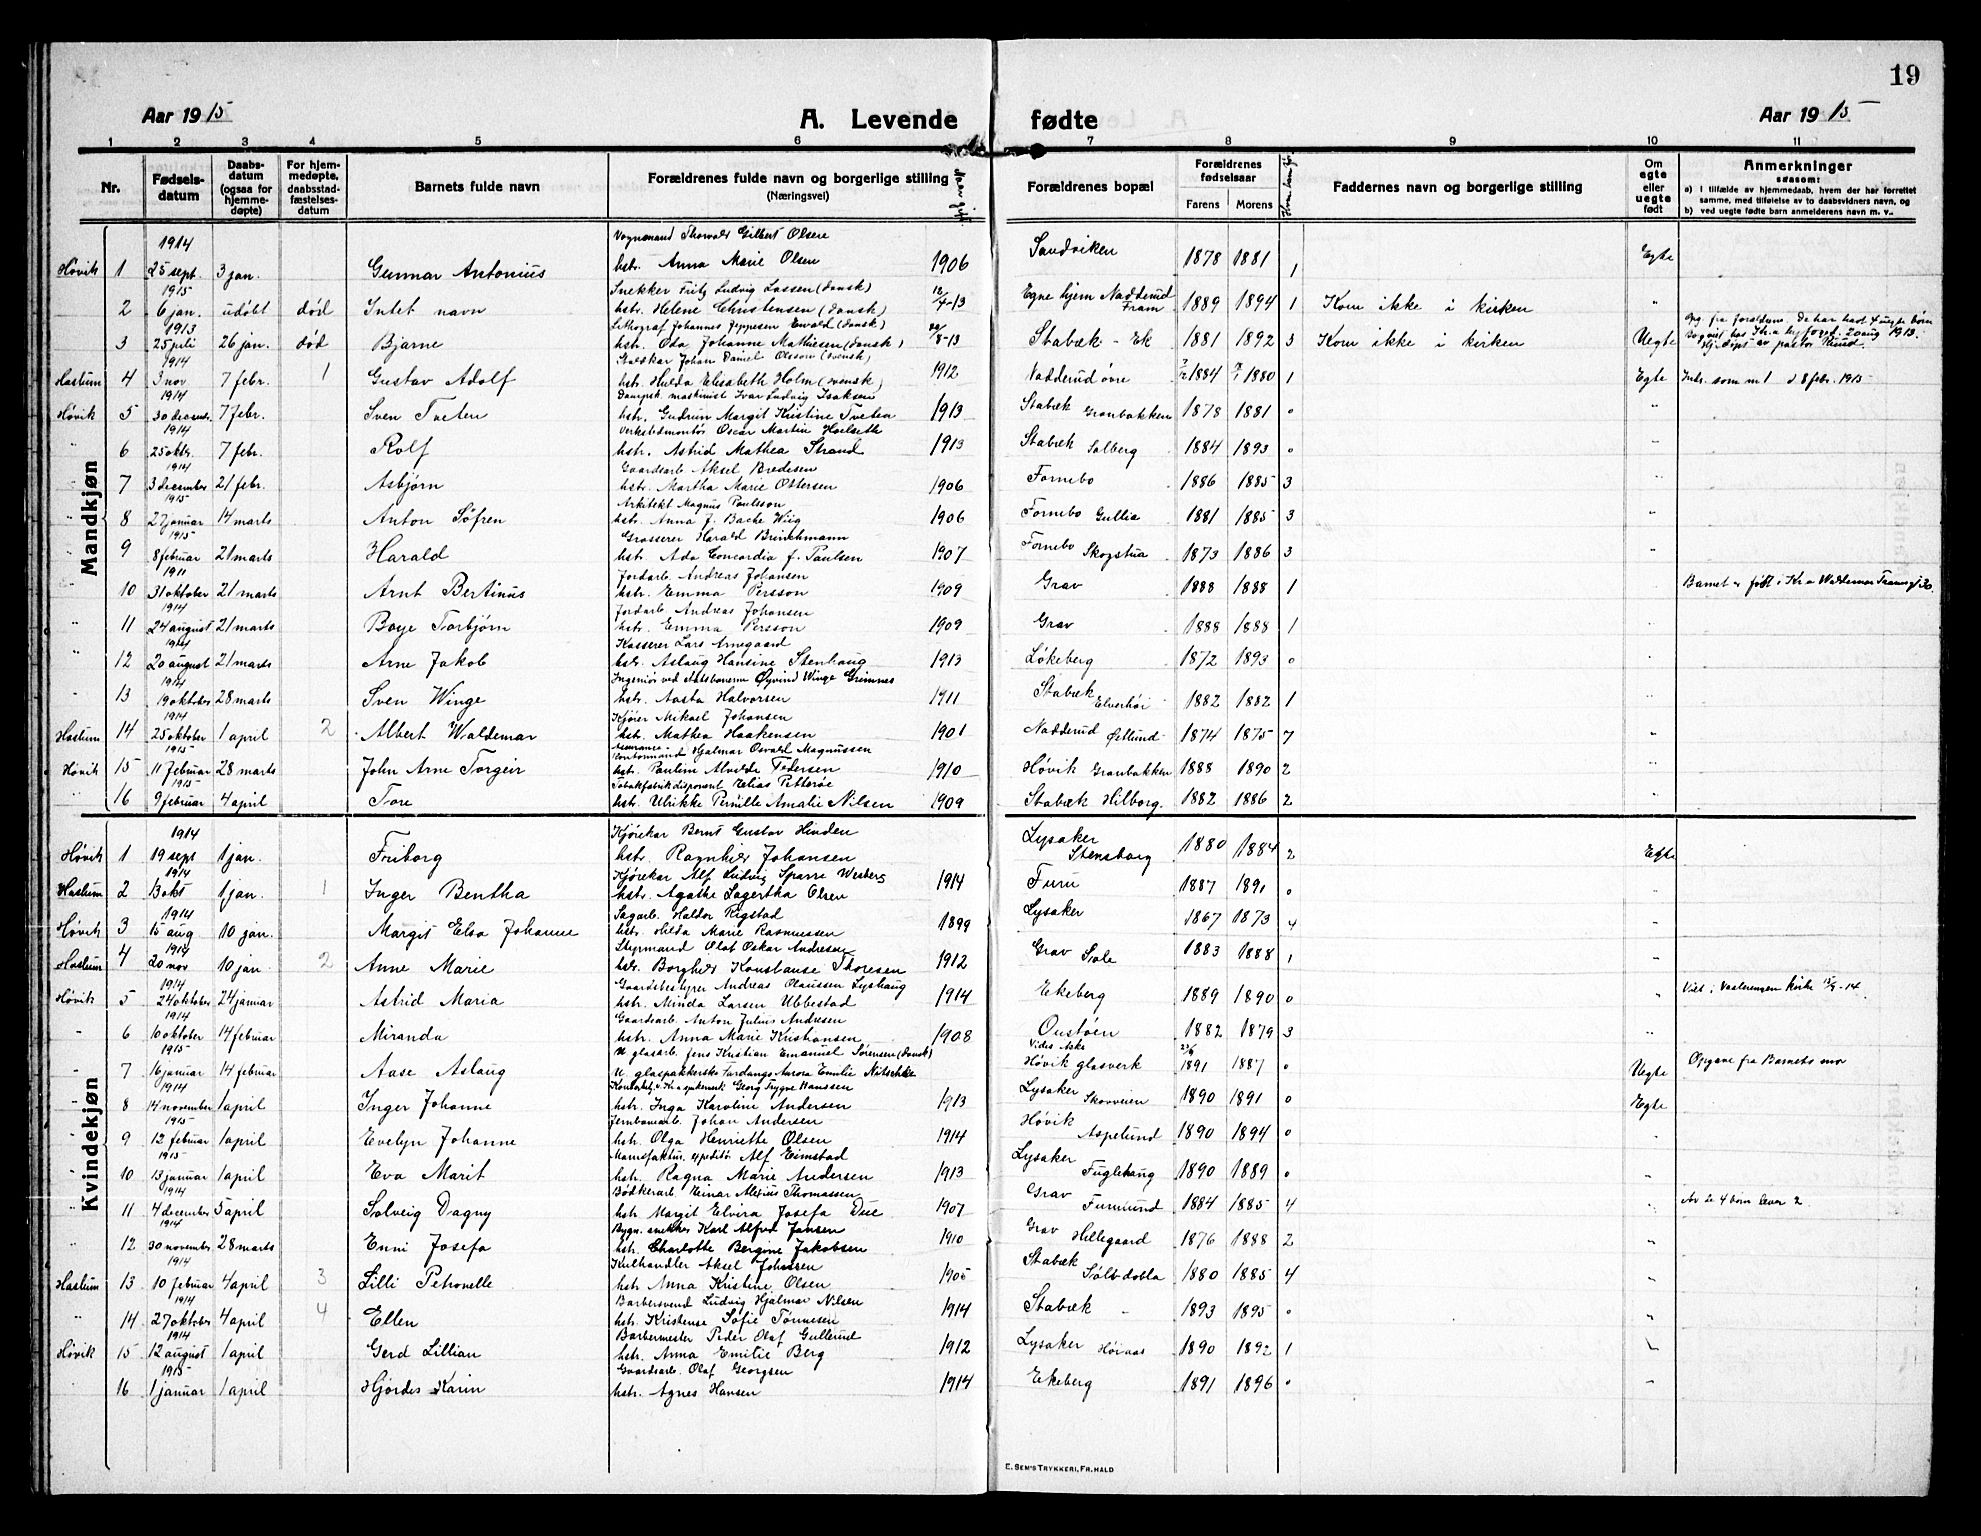 19
Aar 1915 A. Levende fødte Aar 1915
1 2 3 4 5 6 7 8 9 10 11
Nr. Fødselsdatum Daabsdatum (ogsaa for hjemmedøpte) For hjemmedøpte, daabsstadfæstelsesdatum Barnets fulde navn Forældrenes fulde navn og borgerlige stilling (Næringsvei) Naar gift Forældrenes bopæl Forældrenes fødselsaar Farens Morens Faddernes navn og borgerlige stilling Om egte eller uegte født Anmerkninger saasom: a) I tilfælde av hjemmedaab, hvem der har forrettet samme, med tilføielse av to daabsvidners navn, og b) ved uegte fødte barn anmelderens navn m. v.
Mandkjøn
1914 Vognmand Thorvald Gilbert Olsen
Høvik 1 25 sept. 3 jan. Gunnar Antonius hstr. Anna Marie Olsen 1906 Sandviken 1878 1881 1 Egte
1915 Snekker Fritz Ludvig Lassen (dansk)
2 6 jan. udøbt død Intet navn hstr. Helene Christensen (dansk) 12/4-13 Egne hjem Nadderud Fram 1889 1894 1 Kom ikke i kirken "
1913 Lithograf Johannes Jeppesen Ewald (dansk)
3 25 juli 26 jan. død Bjarne hstr. Oda Johanne Mathiesen (dansk) 29/8-13 Stabæk - Ek 1881 1892 3 Kom ikke i kirken Uegte Opg. fra forældrene. De har havt 4 uegte børn
1914 Johan Daniel Olsson (svensk)
Haslum 4 3 nov 7 febr. 1 Gustav Adolf hstr. Hulda Elisabeth Holm (svensk) 1912 Nadderud øvre 1884 1880 1 Egte Indr. som m 1 d 8 febr. 1915
1914 Dampsk. maskinist Ivar Ludvig Isaksen
Høvik 5 30 decemb. 7 febr. Sven Tveten hstr. Gudrun Margit Kristine Tveten 1913 Stabæk Granbakken 1878 1881 0 "
1914 Verkstedmontør Oscar Martin Hoelseth
" 6 25 oktr. 7 febr. Rolf hstr. Astrid Mathea Strand 1913 Stabæk Solberg 1884 1893 0 "
1914 Gaardsarb Aksel Bredesen
" 7 3 december 21 febr. Asbjørn hstr. Martha Marie Ottersen 1906 Fornebo 1886 1885 3 "
1915 Arkitekt Magnus Poulsson
" 8 27 januar 14 marts Anton Søfren hstr. Anna f. Bache Wiig 1906 Fornebo Gullia 1881 1885 3 "
1915 Grosserer Harald Brinchmann
" 9 8 februar 21 marts Harald hstr. Ada Concordia f. Paulsen 1907 Fornebo Skogstua 1873 1886 3 "
1911 Jordarb. Andreas Johansen
" 10 31 oktober 21 marts Arnt Bertinus hstr. Emma Persson 1909 Grav 1888 1888 1 Barnet er født i Kr.a Waldemar Tranesg 30.
1914 Jordarb Andreas Johansen
" 11 24 august 21 marts Boye Torbjørn hstr. Emma Persson 1909 Grav 1888 1888 1 "
1914 Kasserer Lars Arnegaard
" 12 20 august 21 marts Arne Jakob hstr. Aslaug Hansine Stenhaug 1913 Løkeberg 1872 1893 0 "
1914 Ingeniør ved Statsbanerne Øyvind Winge Grimnes
" 13 19 oktober 28 marts Sven Winge hstr. Aasta Halvorsen 1911 Stabæk Elverhøi 1882 1882 1 "
1914 Kjører Mikael Johansen
Haslum 14 25 oktober 1 april 2 Albert Waldemar hstr. Mathea Haakensen 1901 Nadderud Østlund 1874 1875 7 "
1915 Assurance Kontormand Hjalmar Osvald Magnussen
Høvik 15 11 februar 28 marts John Arne Torgeir hstr. Pauline Alvilde Pedersen 1910 Høvik Granbakken 1888 1890 2 "
1915 Tobakfabrikdisponent Elias Petterøe
" 16 9 februar 4 april Tore hstr. Ulrikke Pernille Amalie Nilsen 1909 Stabæk Hilborg. 1882 1886 2 "
Kvindekjøn
1914 Kjørekar Bernt Gustav Hinden
Høvik 1 19 sept 1 jan. Friborg hstr. Ragnhild Johansen Lysaker Stensborg 1880 1884 2 Egte
1914 Kjørekar Alf Ludvig Sparre Westberg
Haslum 2 13 okt 1 jan. 1 Inger Bentha hstr. Agathe Lagertha Olsen 1914 Furu 1887 1891 0 "
1914 Sagarb. Haldor Rigstad
Høvik 3 15 aug 10 jan. Margit Elsa Johanne hstr. Hilda Marie Rasmussen 1899 Lysaker 1867 1873 4 "
1914 Styrmand Olaf Oskar Andresen
Haslum 4 20 nov 10 jan 2 Anne Marie hstr. Borghild Konstanse Thoresen 1912 Grav Sole 1883 1888 1 "
1914 Gaardsbestyrer Andreas Olaussen Lyshaug
Høvik 5 24 oktober 24 januar Astrid Maria hstr. Minda Larsen Ubbestad 1914 Ekeberg 1889 1890 0 " Viet i Vaalerengen kirke -14.
1914 Gaardsarb. Anton Julius Andresen
" 6 10 oktober 14 februar Miranda hstr. Anna Marie Kristiansen 1908 Oustøen 1882 1879 3 "
1915 U. glasarb. Jens Kristian Emanuel Sørensen (dansk)
" 7 16 januar 14 februar Aase Aslaug U. glaspakkerske Aurora Emilie Nitschke Høvik glasverk 1891 1887 0 Uegte Opgave fra Barnets mor
1914 Georg Trygve Hanssen
" 8 14 november 1 april Inger Johanne hstr. Inga Karoline Andersen 1913 Lysaker Skovveien 1890 1891 0 Egte
1915 Jernbanearb. Johan Andersen
" 9 12 februar 1 april Evelyn Johanne hstr. Olga Henriette Olsen 1914 Høvik Aspelund 1890 1894 0 "
1915 Manufaktur. expeditør Alf Eimstad
" 10 13 januar 1 april Eva Marit hstr. Ragna Marie Andersen 1913 Lysaker Fuglehaug 1890 1889 0 "
1914 Bødkerarb. Einar Alexius Thomassen
" 11 4 december 5 april Solveig Dagny hstr. Margit Elvira Josefa Due 1907 Grav Furulund 1884 1885 4 " Av de 4 børn lever 2.
1914 Bygn. snekker Karl Alfred Jansen
" 12 30 november 28 marts Enni Josefa hstr. Charlotte Bergine Jakobsen 1910 Grav Hellegaard 1876 1888 2 "
1914 Kulhandler Aksel Johansen
Haslum 13 10 februar 4 april 3 Lilli Petronelle hstr. Anna Kristine Olsen 1905 Stabæk Sølvdobla 1880 1885 4 "
1914 Barbersvend Ludvig Hjalmar Nilsen
" 14 27 oktober 4 april 4 Ellen hstr. Kristense Sofie Tønnesen 1914 Stabæk 1893 1895 0 "
1914 Barbermester Peder Olaf Gullerud
Høvik 15 12 august 1 april Gerd Lillian hstr. Anna Emilie Berg 1912 Lysaker Høiaas 1890 1892 1 "
1915 Gaardsarb. Olaf Georgsen
" 16 1 januar 1 april Hjørdis Karin hstr. Agnes Hansen 1914 Ekeberg 1891 1896 0 "
E. SEM'S TRYKKERI, FR.HALD